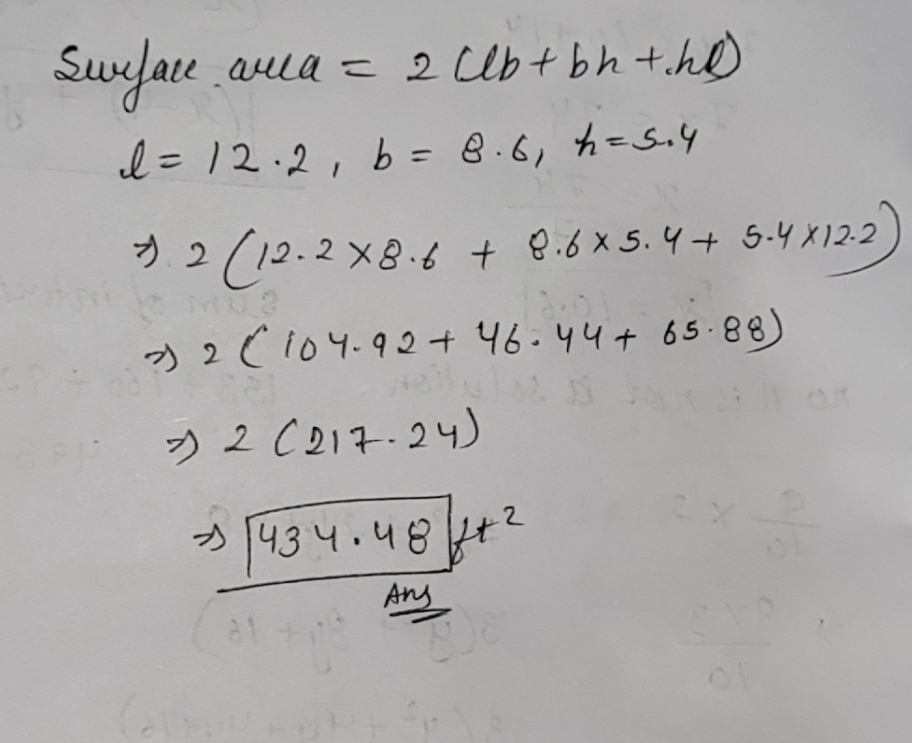 Surface area = 2 (lb + bh + hl)
l = 12.2, b = 8.6, h = 5.4
⇒ 2 (12.2 × 8.6 + 8.6 × 5.4 + 5.4 × 12.2)
⇒ 2 (104.92 + 46.44 + 65.88)
⇒ 2 (217.24)
⇒ 434.48 ft²
Ans